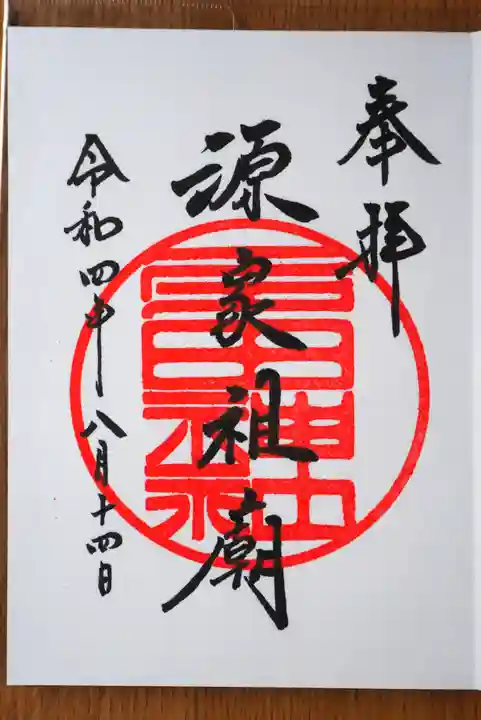 奉拝
源家祖廟
令和四年八月十四日